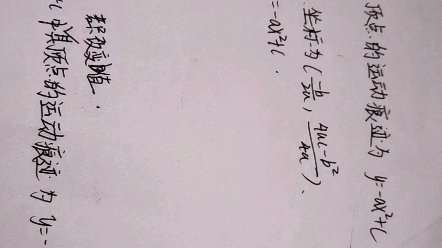 顶点的运动痕迹为 y=-ax²+c
坐标为(-b/2a, 4ac-b²/4a).
=-ax²+c.
值.
中其顶点的运动痕迹 为 y=-